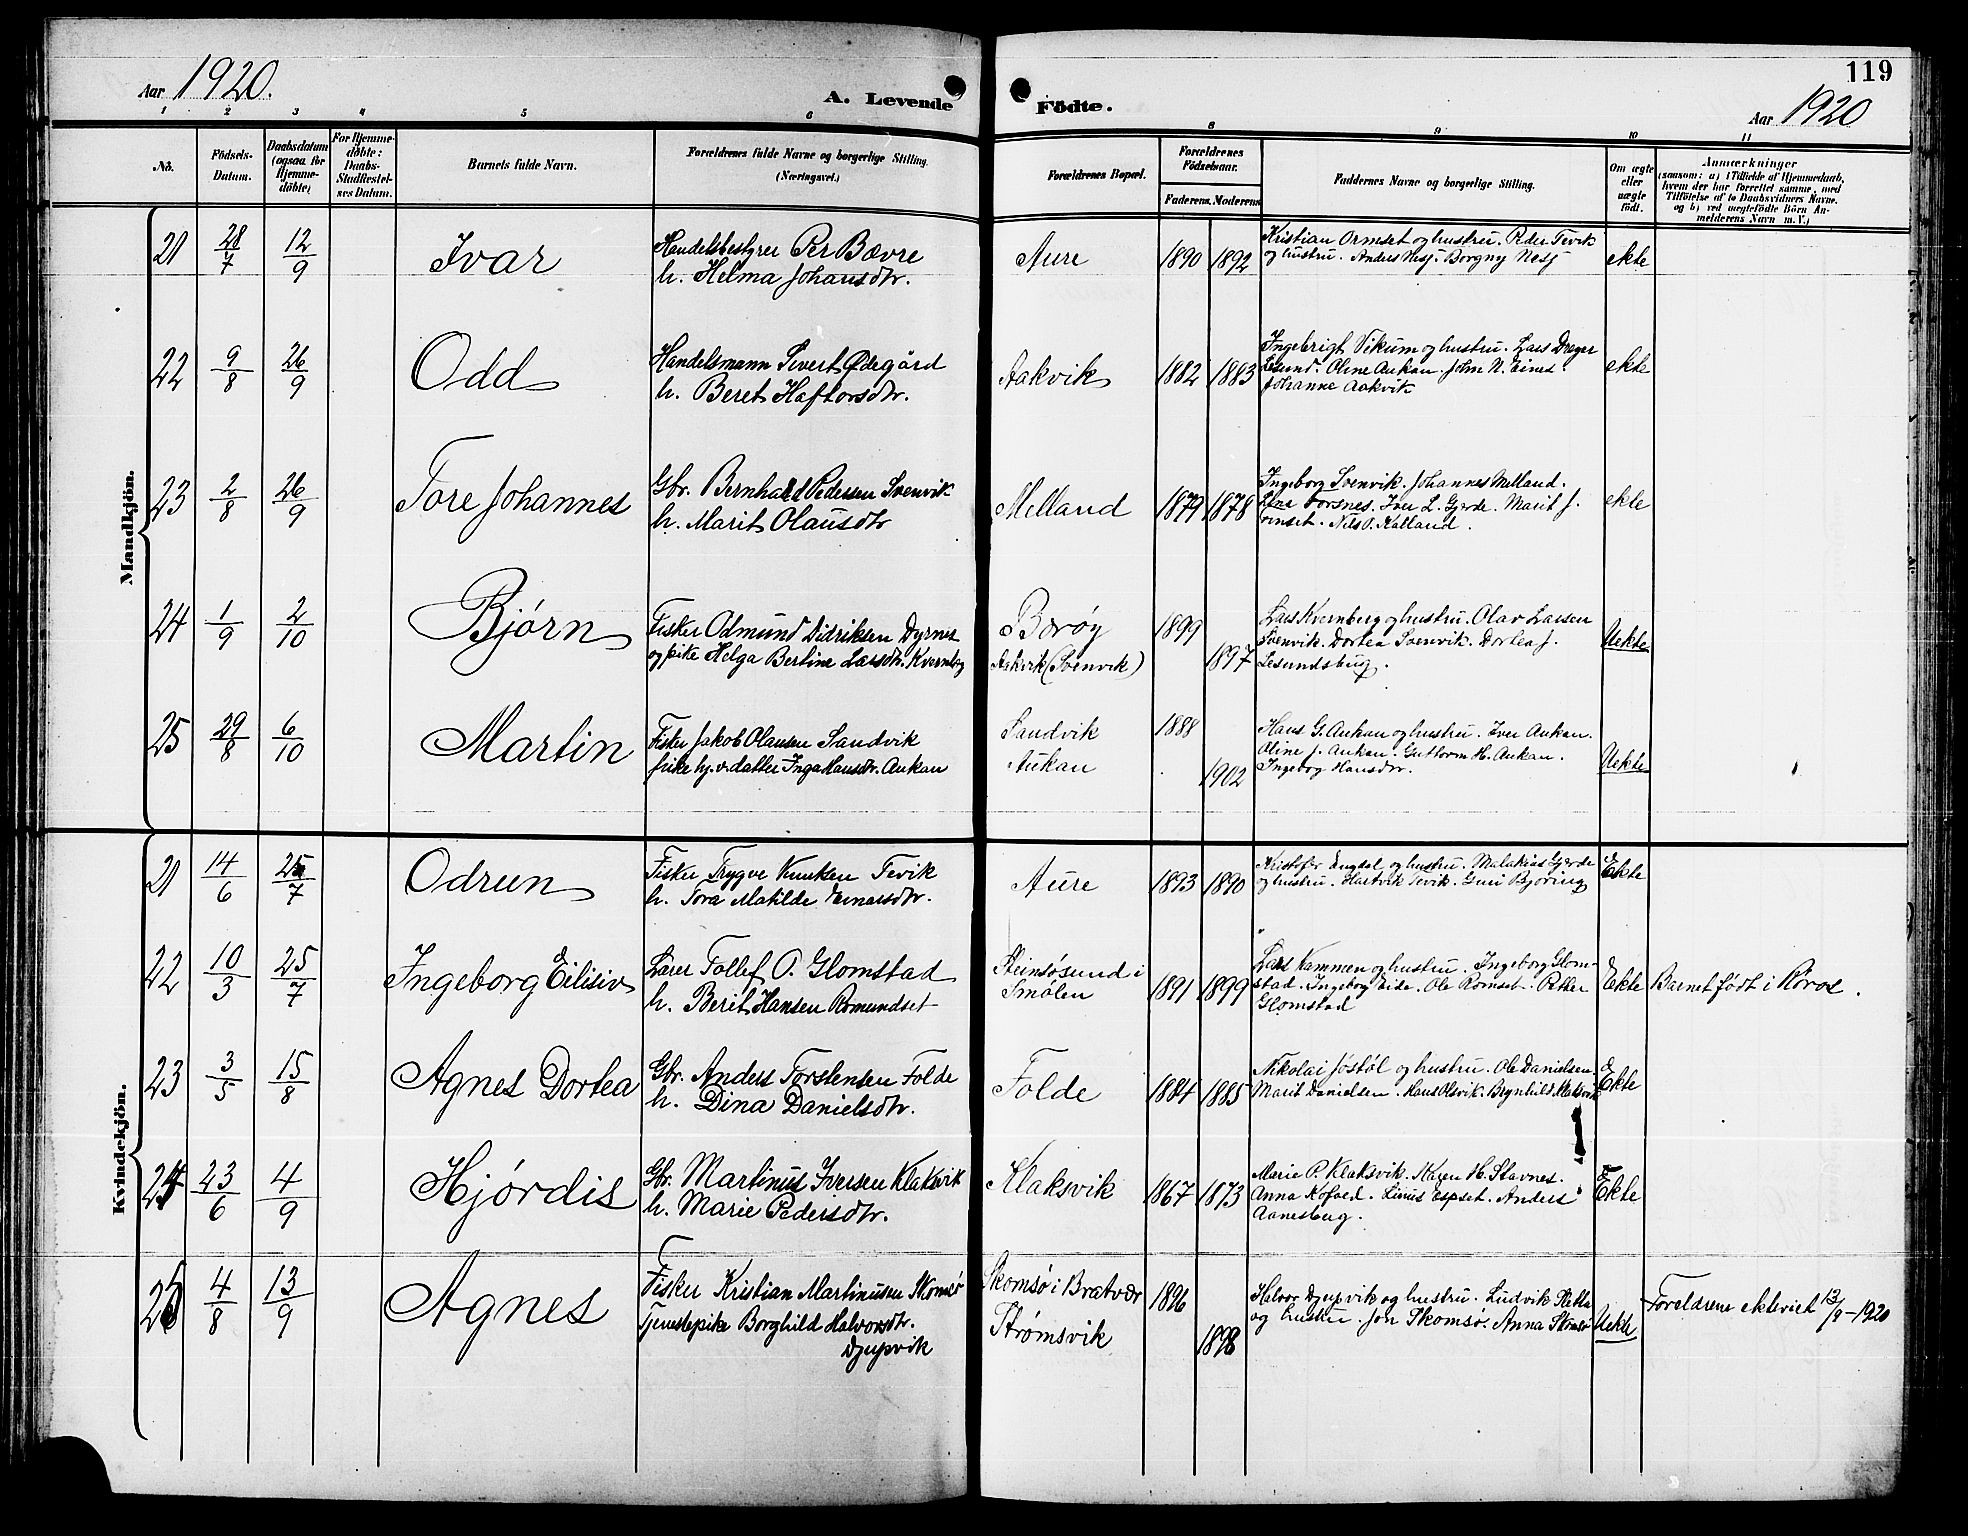 119
Aar 1920.
A. Levende
Födte.
Aar 1920
1 2 3 4 5 6 8 9 10 11
No.
Födsels-
Datum.
Daabsdatum
(ogsaa for
Hjemme-
döbte)
For Hjemme-
døbte:
Daabs-
Stadfæstel-
ses Datum.
Barnets fulde Navn.
Forældrenes fulde Navne og borgerlige Stilling.
(Næringsvei.)
Forældrenes Bopæl.
Forældrenes
Födselsaar.
Faderens. Moderens
Faddernes Navne og borgerlige Stilling.
Om ægte
eller
uægte
födt.
Anmærkninger
(saasom: a) i Tilfælde af Hjemmedaab,
hvem der har forrettet samme, med
Tilföielse af to Daabsvidners Navne.
og b) ved uægtefödte Börn An-
melderens Navn m. V.)
Mandkjön.
21 28/7 12/9 Ivar
Handelsbestyrer Per Bævre
h. Helma Johansdtr.
Aure 1890 1892
Kristian Ormset og hustru. Peder Tevik
og hustru. Anders Nesj. Borgny Nesj
ekte
22 9/8 26/9 Odd
Handelsmann Sivert Ødegård
h. Beret Haftorsdtr.
Aakvik 1882 1883
Ingebrigt Vikum og hustru. Lars Drager
Lesund. Oline Aukan. John N. Eines
Johanne Aakvik
ekte
23 2/8 26/9 Tore Johannes
Gbr. Bernhard Pedersen Svenvik
h. Marit Olausdtr
Melland 1879 1878
Ingeborg Svenvik. Johannes Melland.
Lina Forsnes. Iver L. Gjerde. Marit J.
Nils O. Kalland.
ekte
24 1/9 2/10 Bjørn
Fisker Odmund Didriksen Dyrnes
og pike Helga Bertine Larsdtr. Kvernberg
Borøy
Aakvik (Svenvik)
1899
1897
Lars Kvernberg og hustru. Olav Larsen
Svenvik. Dortea Svenvik. Dortea J.
Lesundsbug.
Uekte
25 29/8 6/10 Martin
Fisker Jakob Olausen Sandvik
pike hj.v. datter Inga Hansdtr. Aukan
Sandvik
Aukan
1888
1902
Hans G. Aukan og hustru. Iver Aukan.
Oline J. Aukan. Guttorm H. Aukan.
Ingeborg Hansdtr.
Uekte
Kvindekjön.
21 14/6 25/7 Odrun
Fisker Trygve Knutsen Tevik
h. Tora Matilde Einarsdtr.
Aure 1893 1890
Kristofer Engdal og hustru. Malakias Gjerde
og hustru. Hartvik Tevik. Guri Bjøring
Ekte
22 10/3 25/7 Ingeborg Eilisiv
Lærer Tollef O. Glomstad
h. Berit Hansen Romundset
Steinsøsund i
Smølen
1891 1899
Lars Kammen og hustru. Ingeborg Glom-
stad. Ingeborg Eide. Ole Romset. Petter
Glomstad
Ekte
Barnet født i Røros.
23 3/5 15/8 Agnes Dortea
Gbr. Anders Torstensen Folde
h. Dina Danielsdtr.
Folde 1884 1885
Nikolai Jøstøl og hustru. Ole Danielsen
Marit Danielsen. Hans Olsvik. Brynhild Klaksvik
Ekte
24 23/6 4/9 Hjørdis
Gbr. Martinus Iversen Klaksvik
h. Marie Pedersdtr.
Klaksvik 1867 1873
Marie P. Klaksvik. Karen H. Stavnes.
Anna Kofoed. Linus Espset. Anders
Aanesbug.
Ekte
25 4/8 13/9 Agnes
Fisker Kristian Martinusen Skomsø
Tjenestepike Borghild Halvorsdtr.
Djupvik
Skomsø i Bratvær
Strømsvik
1896
1898
Halvor Djupvik og hustru. Ludvik Hetla
og hustru. Jon Skomsø. Anna Skomsø
Uekte
Foreldrene ekteviet 13/9-1920